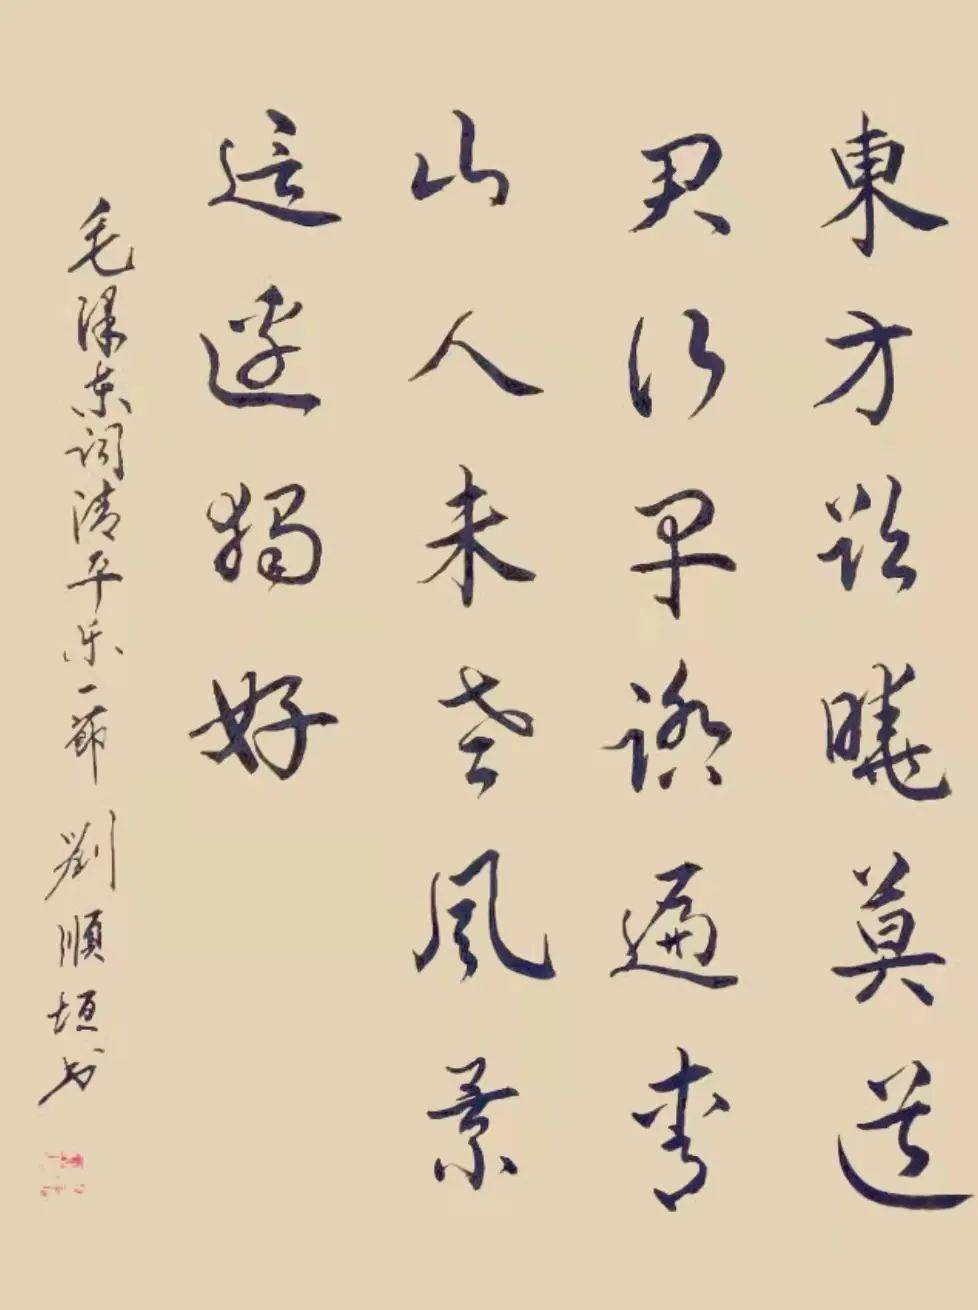 東方欲曉莫道
君行早踏遍青
山人未老風景
這邊獨好
毛泽东词清平乐一節 劉順垣书